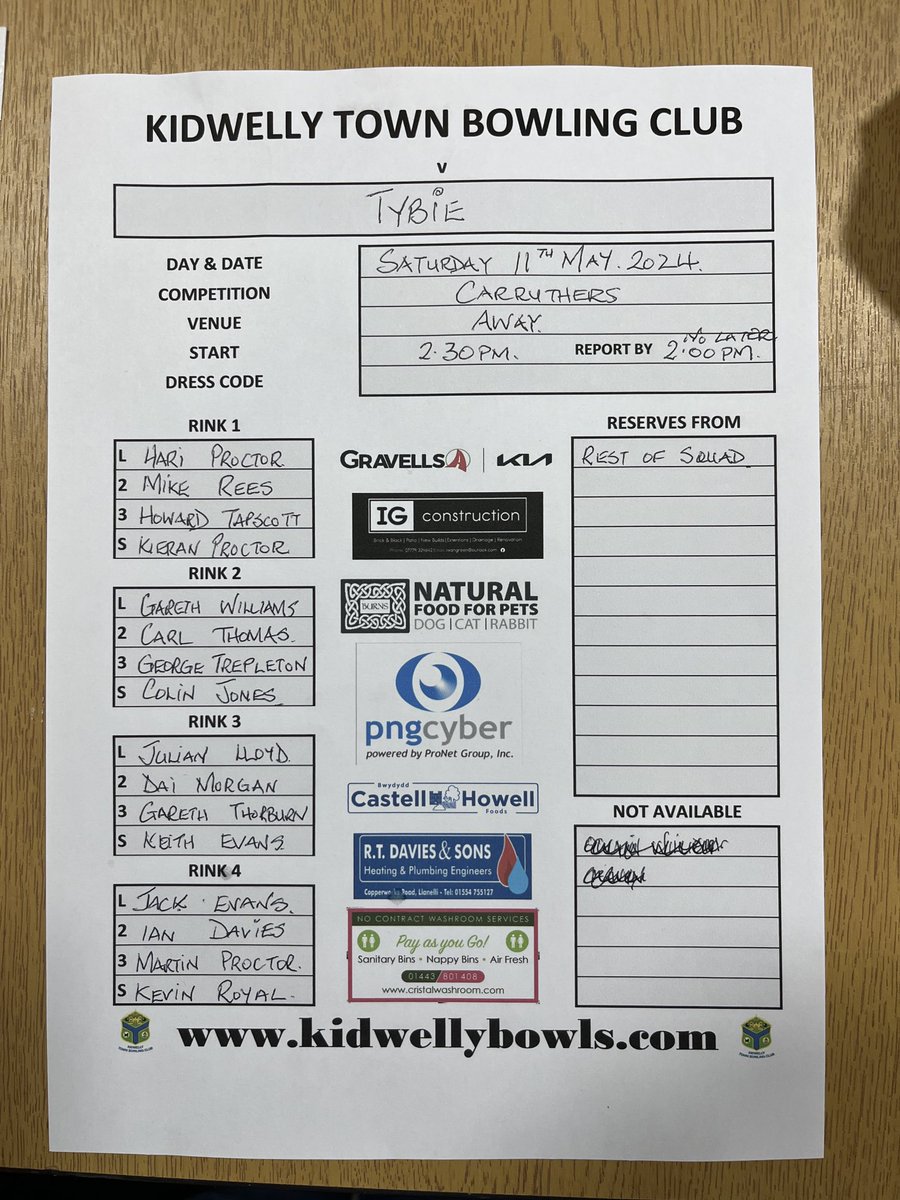 KIDWELLY TOWN BOWLING CLUB
v
TYBIE
DAY & DATE SATURDAY 11TH MAY. 2024.
COMPETITION CARRUTHERS
VENUE AWAY.
START 2.30PM. REPORT BY 2:00PM. NO LATER
DRESS CODE
RINK 1
L HARI PROCTOR
2 MIKE REES
3 HOWARD TAPSCOTT
S KIERAN PROCTOR
RINK 2
L GARETH WILLIAMS
2 CARL THOMAS.
3 GEORGE TREPLETON
S COLIN JONES
RINK 3
L JULIAN LLOYD.
2 DAI MORGAN
3 GARETH THORBURN
S KEITH EVANS
RINK 4
L JACK EVANS.
2 IAN DAVIES
3 MARTIN PROCTOR.
S KEVIN ROYAL.
GRAVELLS KIA
IG construction
Brick & Block | Patio | New Builds | Extentions | Drainage | Renovation
BURNS
NATURAL
FOOD FOR PETS
DOG | CAT | RABBIT
pngcyber
powered by ProNet Group, Inc.
Bwydydd
Castell Howell
Foods
R.T. DAVIES & SONS
Heating & Plumbing Engineers
Road, Llanelli - Tel: 01554 755127
NO CONTRACT WASHROOM SERVICES
Pay as you Go!
Sanitary Bins • Nappy Bins • Air Fresh
01443 801 408
www.cristalwashroom.com
RESERVES FROM
REST OF SQUAD
NOT AVAILABLE
www.kidwellybowls.com
KIDWELLY
TOWN BOWLING CLUB
KIDWELLY
TOWN BOWLING CLUB